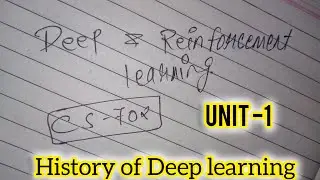 Deep & Reinforcement
learning
CS-702
UNIT-1
History of Deep learning